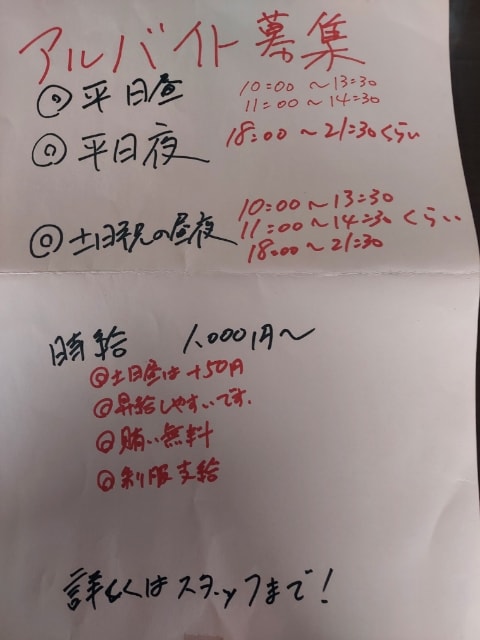 アルバイト募集
◎平日昼 10:00～13:30
11:00～14:30
◎平日夜 18:00～21:30くらい
◎土日祝の昼夜 10:00～13:30
11:00～14:30くらい
18:00～21:30
時給 1,000円～
◎土日昼は+50円
◎昇給しやすいです.
◎賄い無料
◎制服支給
詳しくはスタッフまで!